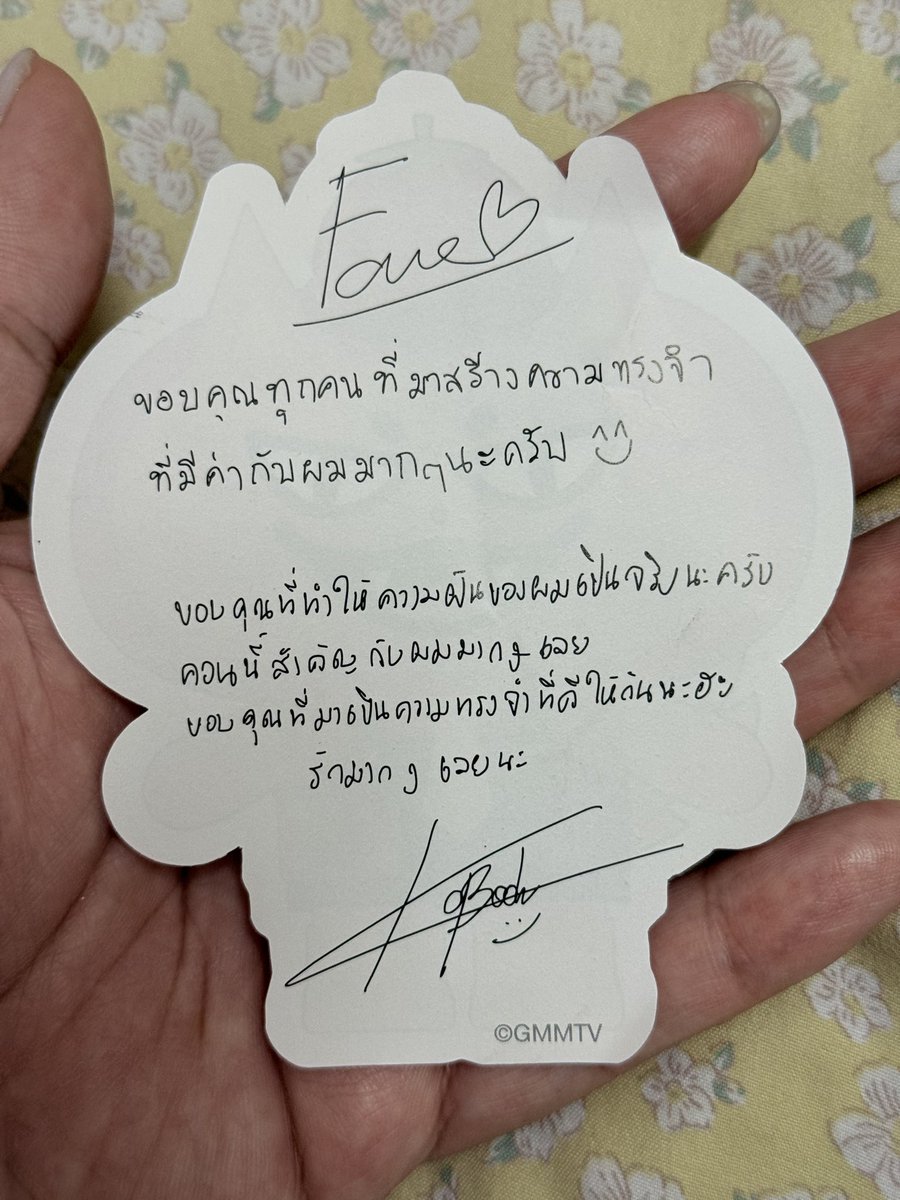 Fourth
ขอบคุณทุกคนที่มาสร้างความทรงจำ
ที่มีค่ากับผมมากๆนะครับ
ขอบคุณที่ทำให้ความฝันของผมเป็นจริงนะครับ
คอนนี้สำคัญกับผมมากๆเลย
ขอบคุณที่มาเป็นความทรงจำที่ดีให้กันนะฮะ
รักมากๆเลยนะ
©GMMTV